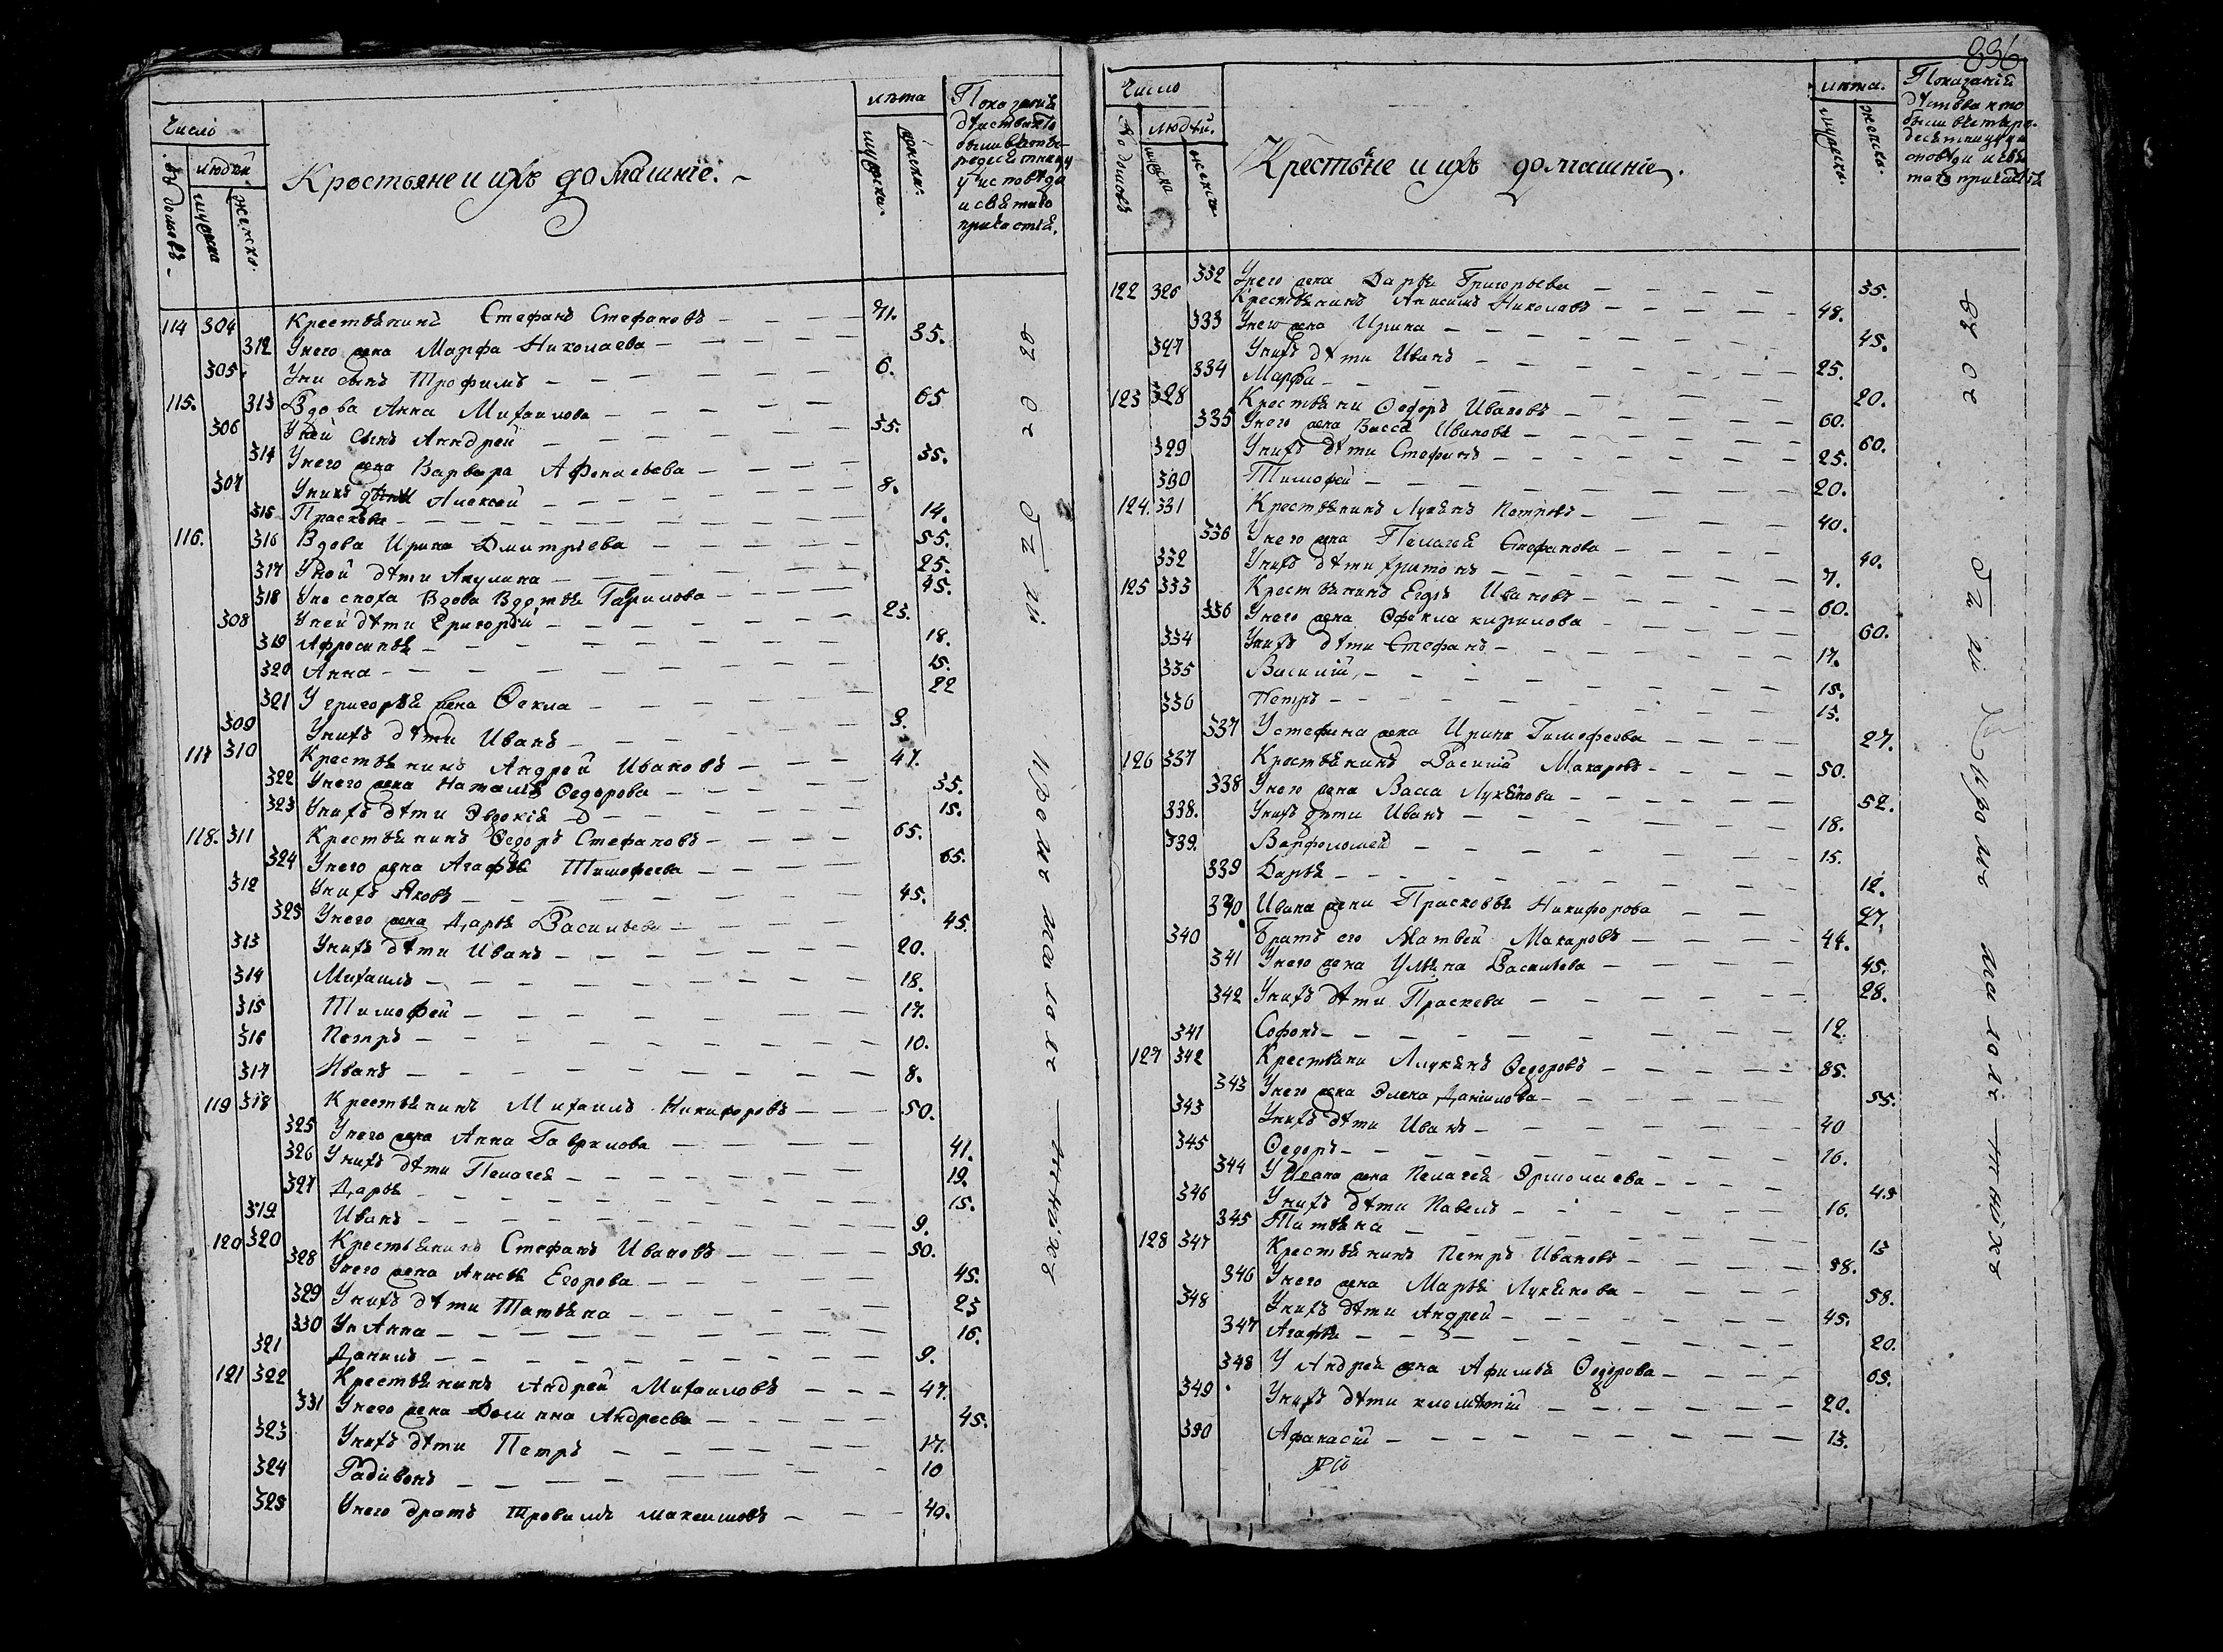 Число
людей
въ домовъ
мужеска
женско.
Крестьяне и ихъ домашніе.
лѣта
мужеска.
женска.
Показаніе
114 304 Крестьянинъ Стефанъ Стефановъ 41.
312 Унего жена Марфа Николаева 35.
305. Уни сынъ Трофимъ 6.
115. 313 Вдова Анна Михаилова 65
306 Уней Сынъ Анндрей 35.
314 Унего жена Варвара Афонасьева 35.
307 Унихъ дѣти Алексей 8.
315 Прасковя 14.
116. 316 Вдова Ирина Дмитріева 55.
317 Уной дѣти Акулина 25.
318 Уне сноха Вдова Гаврилова 45.
308 Уней дѣти Григорей 23.
319 Афросинья 18.
320 Анна 15.
321 У григорья жена Ѳекла 22
309 Унихъ дѣти Иванъ 3.
117 310 Крестьянинъ Андрей Ивановъ 47.
322 Унего жена Наталья Ѳедорова 35.
323 Унихъ дѣти Эвдокія 15.
118. 311 Крестьянинъ Ѳедоръ Стефановъ 65.
324 Унего жена Агафья Тимофеева 65.
312 Унихъ Яковъ 45.
325 Унего жена Дарья Васильева 45.
313 Унихъ дѣти Иванъ 20.
314 Михаилъ 18.
315 Тимофей 17.
316 Петръ 10.
317 Иванъ 8.
119 318 Крестьянинъ Михаилъ Никифоровъ 50.
325 Унего жена Анна Гаврилова 41.
326 Унихъ дѣти Пелагея 19.
327 Дарья 15.
319 Иванъ 9.
120 320 Крестьянинъ Стефанъ Ивановъ 50.
328 Унего жена Анисья Егорова 45.
329 Унихъ дѣти Татьяна 23
330 Ун Анна 16.
321 Данилъ 9.
121 322 Крестьянинъ Андрей Михаиловъ 47.
331 Унего жена Домнна Андреева 45.
323 Унихъ дѣти Петръ 17.
324 Радивонъ 10
325 Унего братъ Трофимъ максимовъ 40.
836
Число
людей.
во домовъ
женско
Крестьяне и ихъ домашніе.
лѣта.
мужеска.
женско.
332 Унего жена Дарья Григорьева 35.
122 326 Крестьянинъ Анисимъ Николаевъ 48.
333 Унего жена Ирина 45.
327 Унихъ дѣти Иванъ 25.
334 Марфа 20.
123 328 Крестьяни Ѳедоръ Ивановъ 60.
335 Унего жена Васса Иванова 60.
329 Унихъ дѣти Стефанъ 25.
330 Тимофей 20.
124. 331 Крестьянинъ Лукьянъ Петровъ 40.
336 Унего жена Пелагея Стефанова 40.
332 Унихъ дѣти Аритонъ 7.
125 333 Крестьянинъ Егоръ Ивановъ 60.
336 Унего жена Ѳфекла кирилова 60.
334 Унихъ дѣти Стефанъ 17.
335 Василій 15.
336 Петръ 15.
337 У стефана жена Ирина Тимофеева 27.
126 337 Крестьянинъ Василій Макаровъ 50.
338 Унего жена Васса Лукьянова 52.
338. Унихъ дѣти Иванъ 18.
339. Варфоломей 15.
339 Дарья 12.
340 Ивана жена Прасковья Никифорова 27.
340 Братъ его Матвей Макаровъ 44.
341 Унего жена Ульяна Васильева 45.
342 Унихъ дѣти Праскева 28.
341 Софонъ 12.
127 342 Крестьяни Лукьянъ Ѳедоровъ 85.
343 Унего жена Элена Данилова 55.
343 Унихъ дѣти Иванъ 40
345 Ѳедоръ 16.
344 У Ивана жена Пелагея Эрмолаева 45
346 Унихъ дѣти Павелъ 16.
345 Татьяна 13
128 347 Крестьянинъ Петръ Ивановъ 58.
346 Унего жена Марья Лукьянова 58.
348 Унихъ дѣти Андрей 45.
347 Агафья 20.
348 У Андрея жена Афимья Ѳедорова 65.
349 Унихъ дѣти клеметій 20.
350 Афанасій 13.